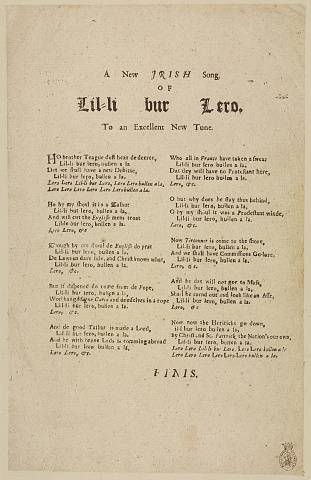 A New IRISH Song,
OF
Lil-li bur Lero,
To an Excellent New Tune.
HO brother Teague dost hear de decree,
Lil-li bur lero, bullen a la,
Dat we shall have a new Debittie,
Lil-li bur lero, bullen a la,
Lero Lero Lil-li bur Lero, Lero Lero bullen a la,
Lero Lero Lero Lero Lero Lero bullen a la.
Ho by my shoul it is a Talbot
Lil-li bur lero, bullen a la,
And will cut de English mens troat
Lil-li bur lero, bullen a la,
Lero Lero, &c
Though by my shoul de English do prat
Lil-li bur lero, bullen a la
De Law on dare side, and Christ knows what,
Lero, &c.
But if dispence do come from de Pope,
Lil-li bur lero, bullen a la
Weel hang Magna Carta and demselves in a rope
Lero, &c.
And de good Talbot is made a Lord,
Lil-li bur lero, bullen a la
And he with brave Lads is comming aboard
Lil-li bur lero bullen a la,
Lero Lero, &c.
Who all in France have taken a swear
Lil-li bur lero, bullen a la.
Dat dey will have no Protestant heir,
Lil-li bur lero bullen a la,
Lero, &c.
O but why does he stay thus behind,
Lil-li bur lero, bullen a la,
O by my shoul it was a Prodestant winde,
Lero, &c.
Now Tirconnel is come a shore,
Lil-li bur lero, bullen a la
And we shall have Commissions Go-lare.
Lero, &c.
And he dat will not go to Mass,
Lil-li bur lero, bullen a la,
Shall be turnd out and look like an Asse,
Lil-li bur lero, bullen a la.
Lero, &c.
Now now the Hereticks go down,
Lil-li bur lero bullen a la,
by Christ and St. Patrick, the Nation's our own,
Lil-li bur lero, bullen a la.
Lero Lero Lil-li bur Lero, Lero Lero bullen a la
Lero Lero Lero Lero Lero Lero bullen a la.
FINIS.